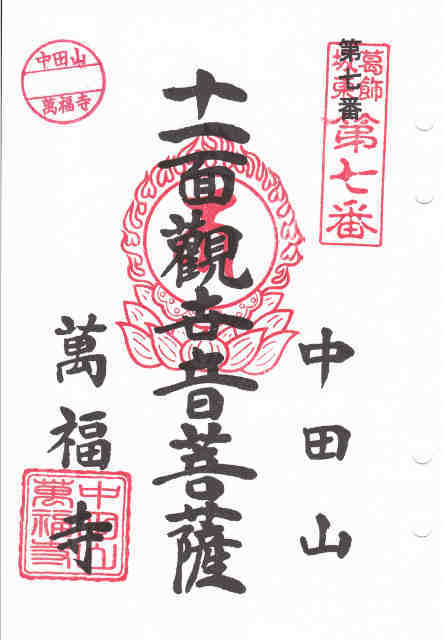 葛飾
坂東
第七番
第七番
中田山
十一面觀世音菩薩
萬福寺
中田山
萬福寺
中田山
萬福寺